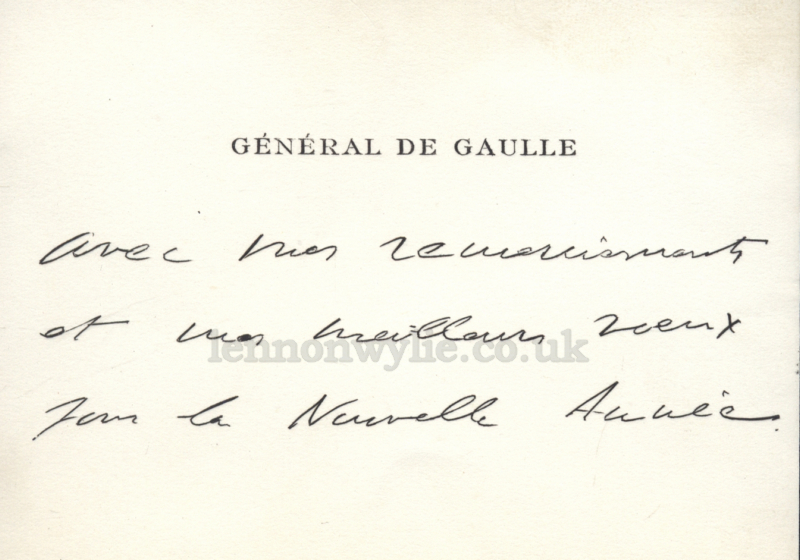 GÉNÉRAL DE GAULLE
avec mes remerciements
et mes meilleurs vœux
lennonwylie.co.uk
pour la Nouvelle Année.